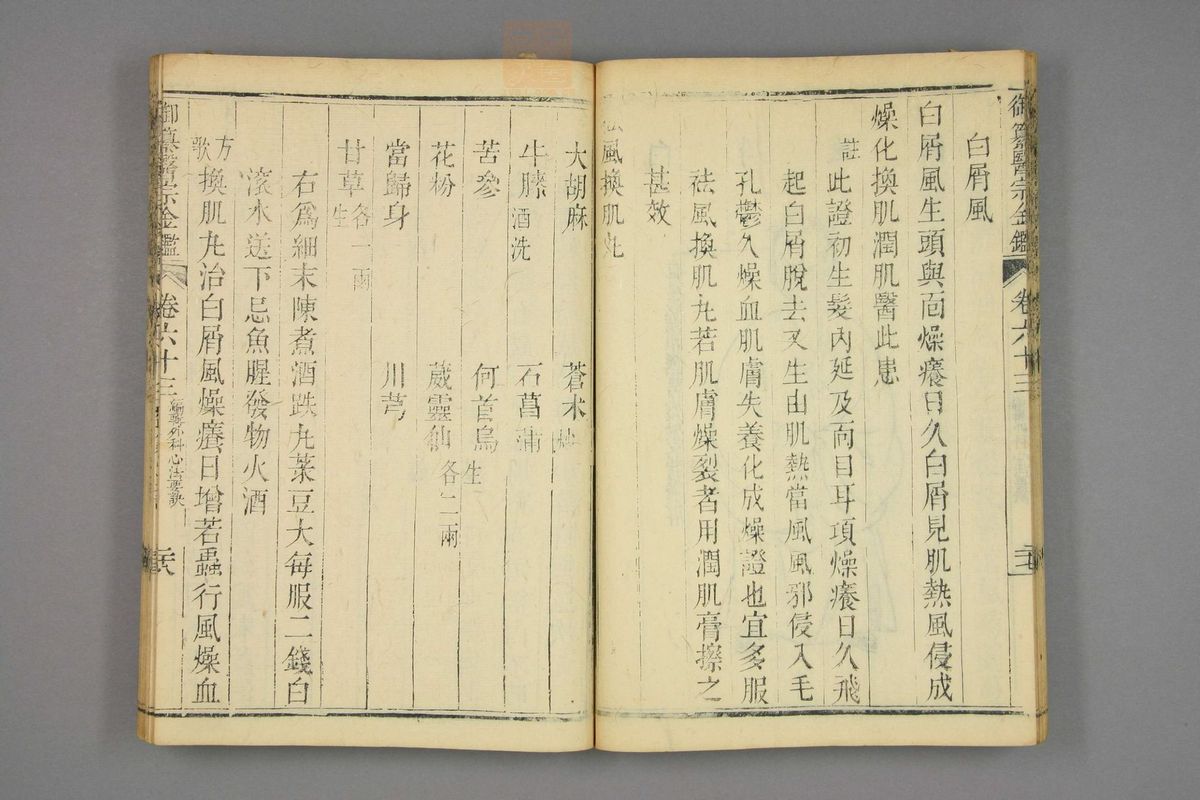 御纂醫宗金鑑 卷六十三
白屑風
白屑風生頭與面燥癢日久白屑見肌熱風侵成
燥化換肌潤肌醫此患
註此證初生髮內延及面目耳項燥癢日久飛
起白屑脫去又生由肌熱當風風邪侵入毛
孔鬱久燥血肌膚失養化成燥證也宜多服
祛風換肌丸若肌膚燥裂者用潤肌膏擦之
甚效
風換肌丸
大胡麻 蒼朮炒
牛膝酒洗 石菖蒲
苦參 何首烏生
花粉 葳靈仙各二兩
當歸身 川芎
甘草生各一兩
右爲細末陳煮酒跌丸菉豆大每服二錢白
滾水送下忌魚腥發物火酒
方歌換肌丸治白屑風燥癢日增若蟲行風燥血
御纂醫宗金鑑 卷六十三 編輯外科心法要訣